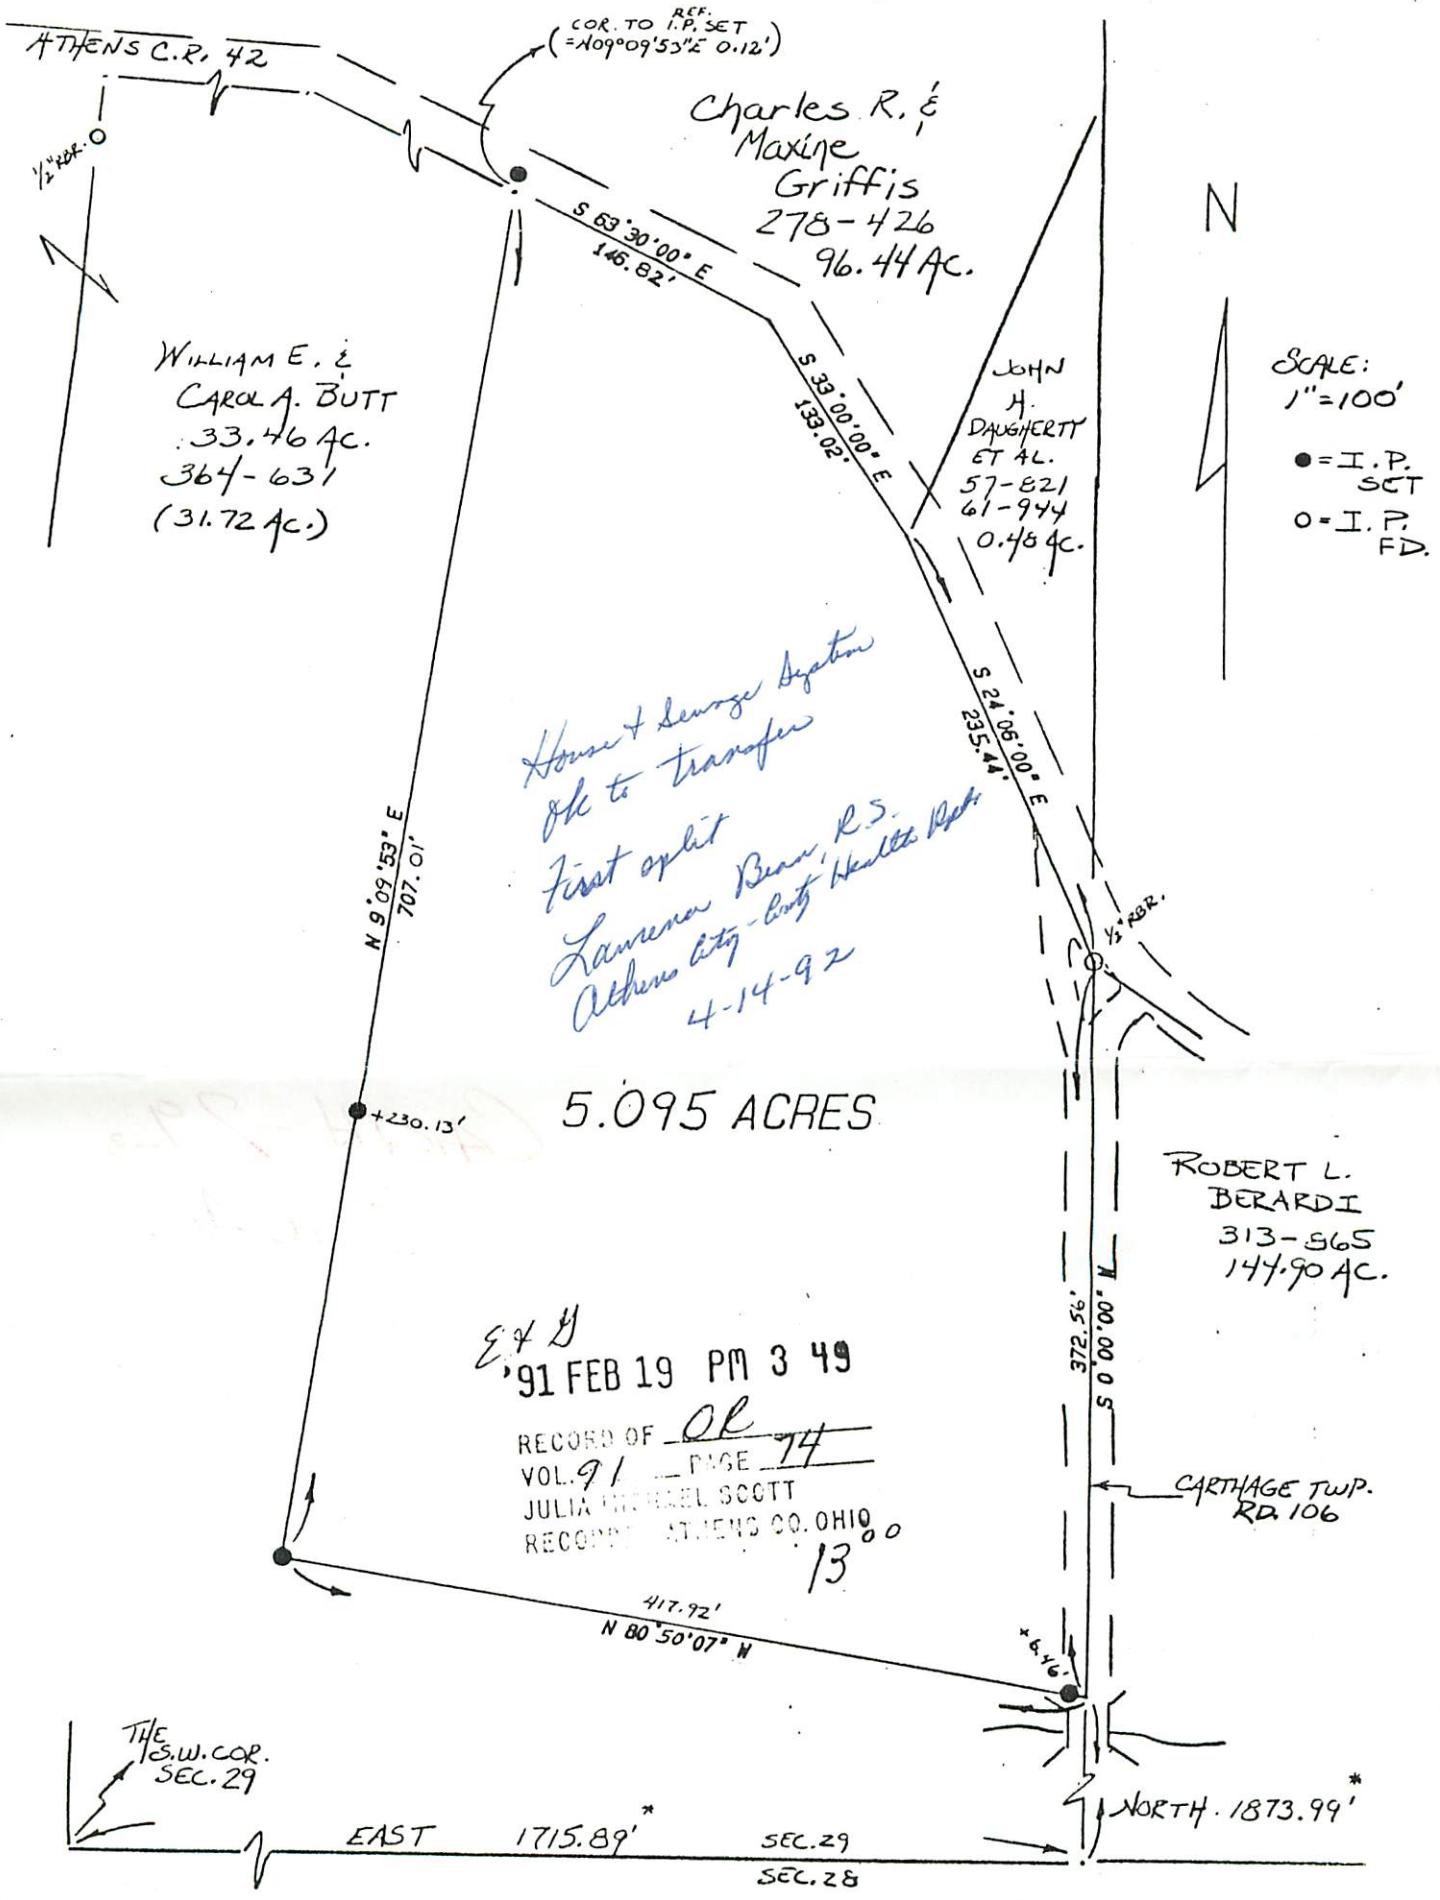 ATHENS C.R. 42
REF.
COR. TO I.P. SET
(=N09°09'53"E 0.12')
1/2" RBR.
Charles R. &
Maxine
Griffis
278-426
96.44 AC.
N
S 63°30'00" E
146.82'
WILLIAM E. &
CAROL A. BUTT
33.46 AC.
364-631
(31.72 AC.)
S 33°00'00" E
133.02'
JOHN
H.
DAUGHERTY
ET AL.
57-821
61-944
0.48 AC.
SCALE:
1"=100'
● = I.P.
SET
○ = I.P.
FD.
House & Sewage System
ok to transfer
First split
Lawrence Bean, R.S.
Athens City-County Health Dept.
4-14-92
S 24°06'00" E
235.44'
N 9°09'53" E
707.01'
1/2" RBR.
+230.13'
5.095 ACRES
ROBERT L.
BERARDI
313-565
144.90 AC.
372.56'
S 0°00'00" W
'91 FEB 19 PM 3 49
RECORD OF OR
VOL. 91 PAGE 74
JULIA MICHAEL SCOTT
RECORDER ATHENS CO. OHIO
13 00
CARTHAGE TWP.
RD. 106
417.92'
N 80°50'07" W
+6.46'
THE
S.W. COR.
SEC. 29
NORTH 1873.99'*
EAST 1715.89'* SEC. 29
SEC. 28